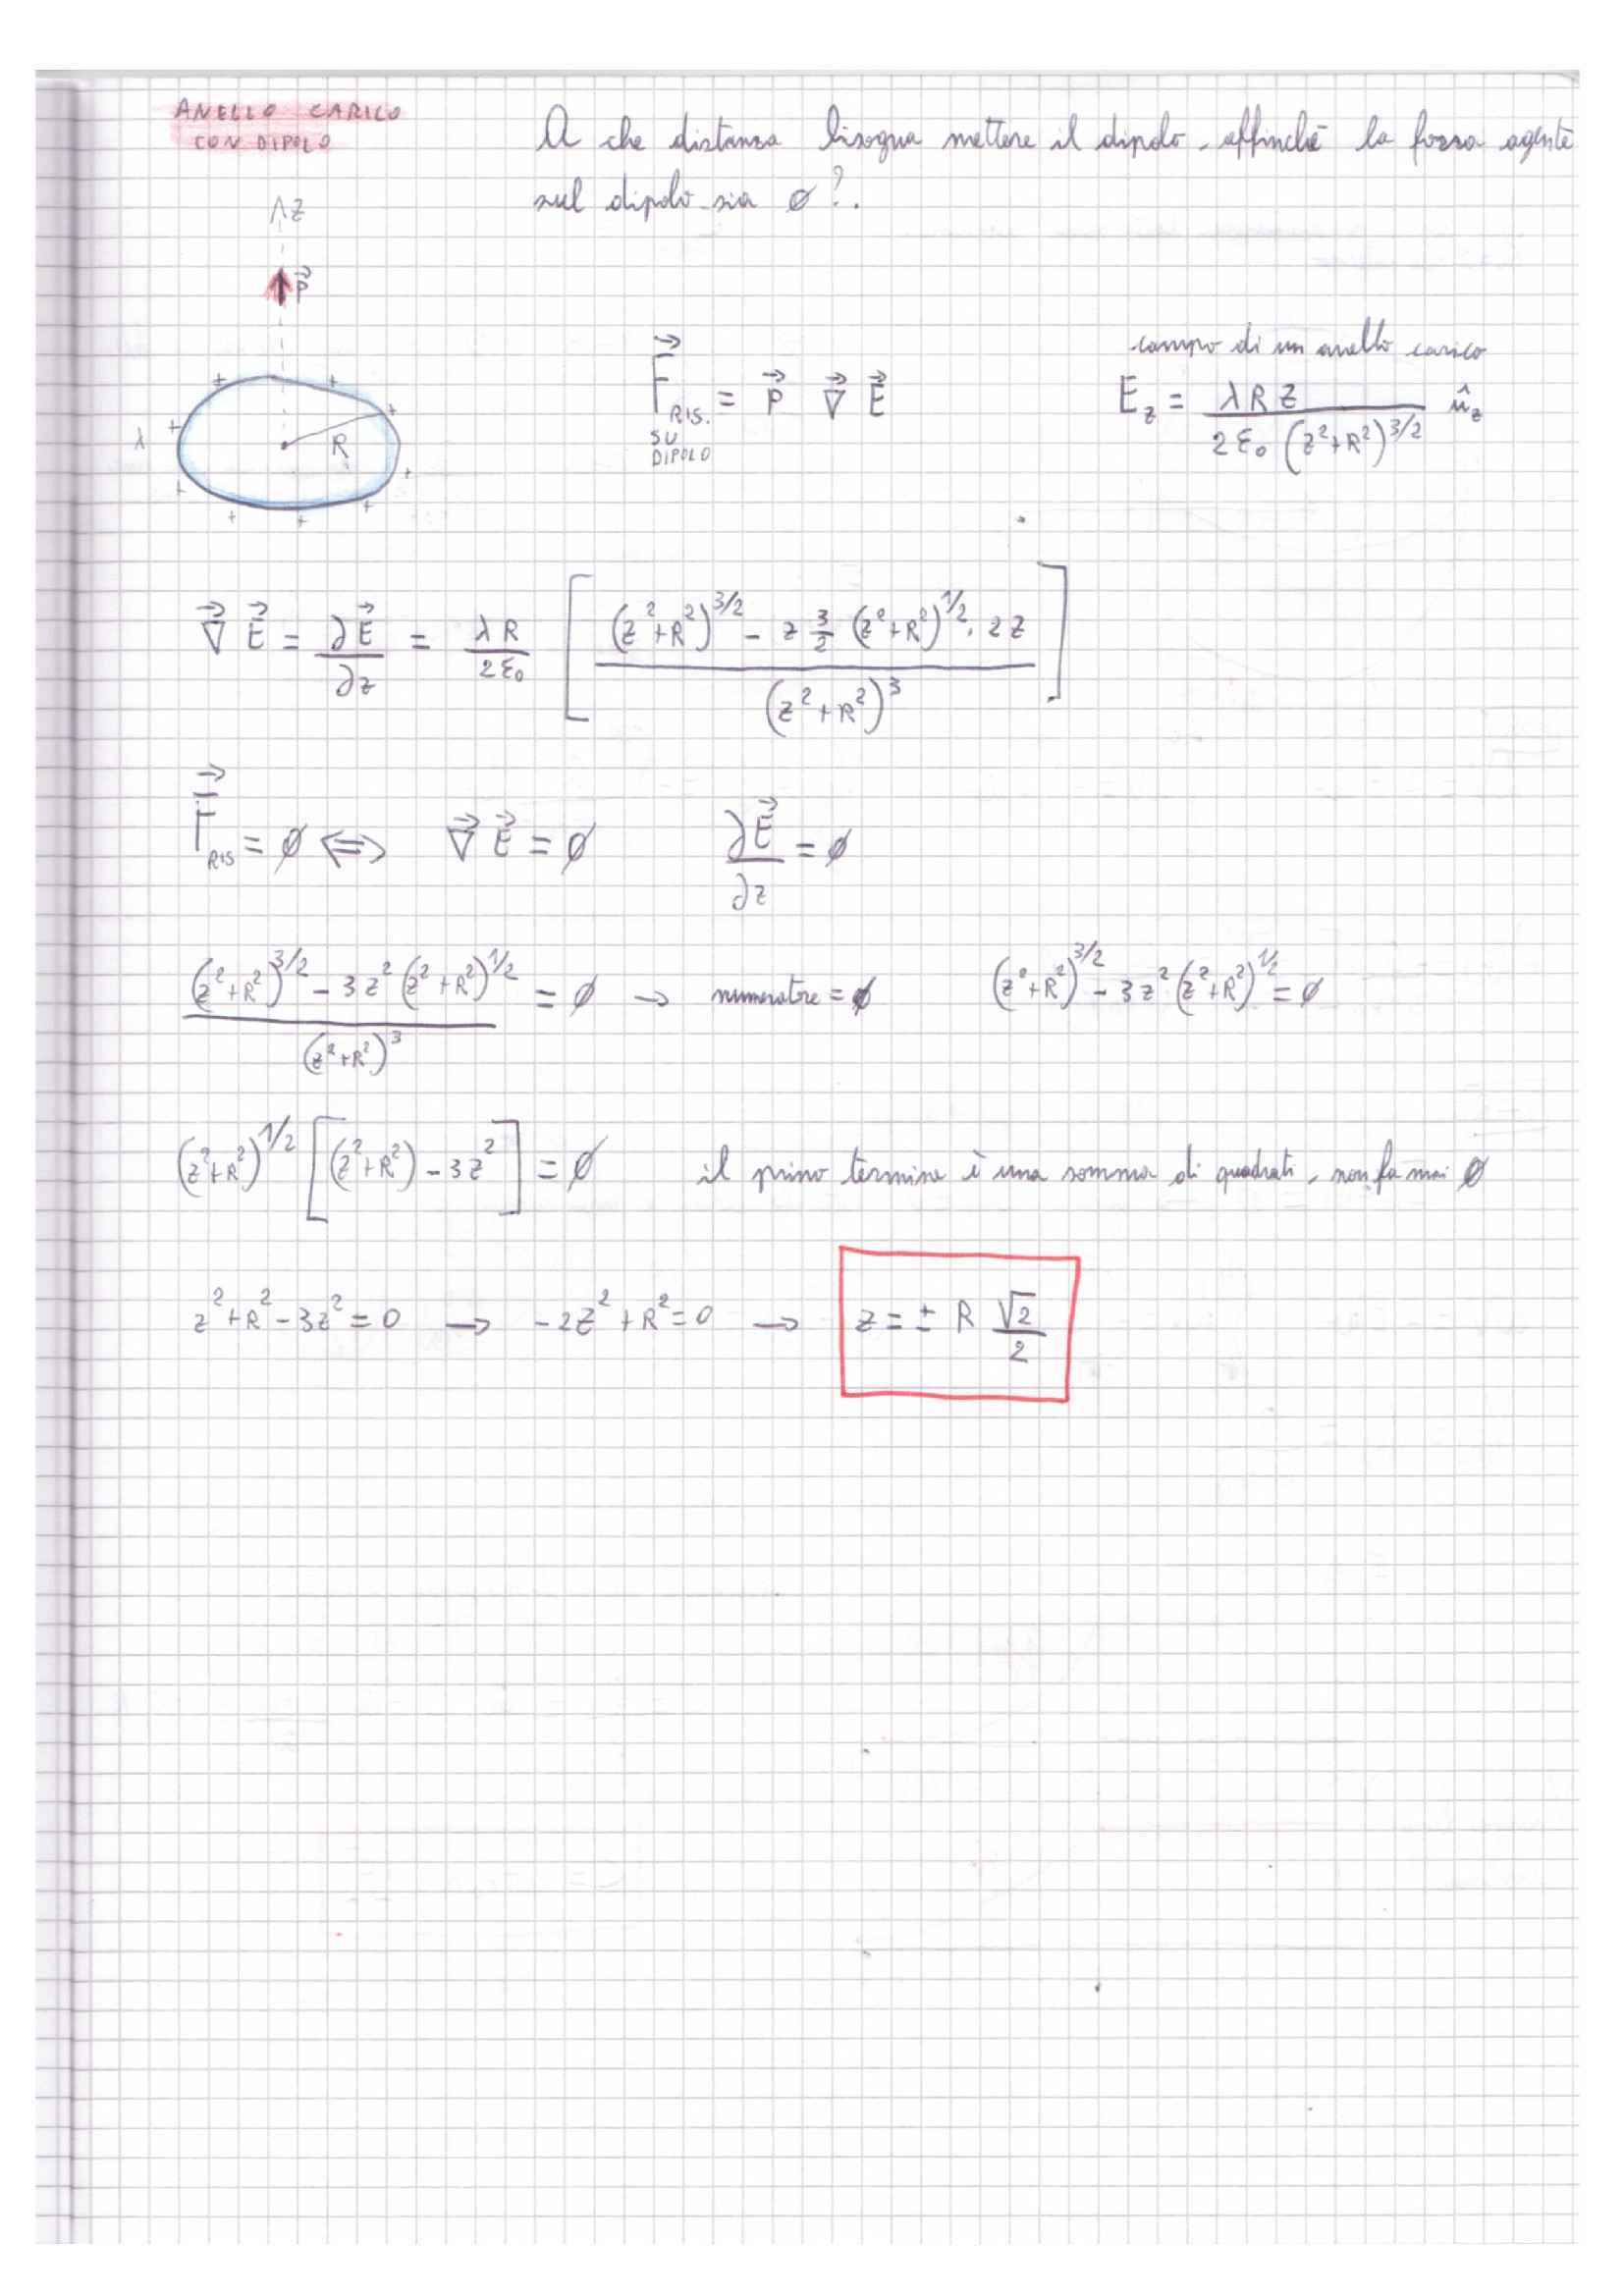 ANELLO CARICO
CON DIPOLO
A che distanza bisogna mettere il dipolo, affinchè la forza agente
sul dipolo sia ∅?.
z
p⃗
λ
R
F⃗ RIS. SU DIPOLO = p⃗ ∇⃗ E⃗
campo di un anello carico
E_z = λRz / 2ε₀ (z²+R²)^3/2 û_z
∇⃗ E⃗ = ∂E⃗/∂z = λR/2ε₀ [ ((z²+R²)^3/2 - z 3/2 (z²+R²)^1/2 · 2z) / (z²+R²)³ ]
F⃗ RIS = ∅ ⇔ ∇⃗ E⃗ = ∅ ∂E⃗/∂z = ∅
((z²+R²)^3/2 - 3z² (z²+R²)^1/2) / (z²+R²)³ = ∅ → numeratore = ∅ (z²+R²)^3/2 - 3z² (z²+R²)^1/2 = ∅
(z²+R²)^1/2 [(z²+R²) - 3z²] = ∅ il primo termine è una somma di quadrati, non fa mai ∅
z²+R²-3z² = 0 → -2z²+R² = 0 → z = ± R √2/2